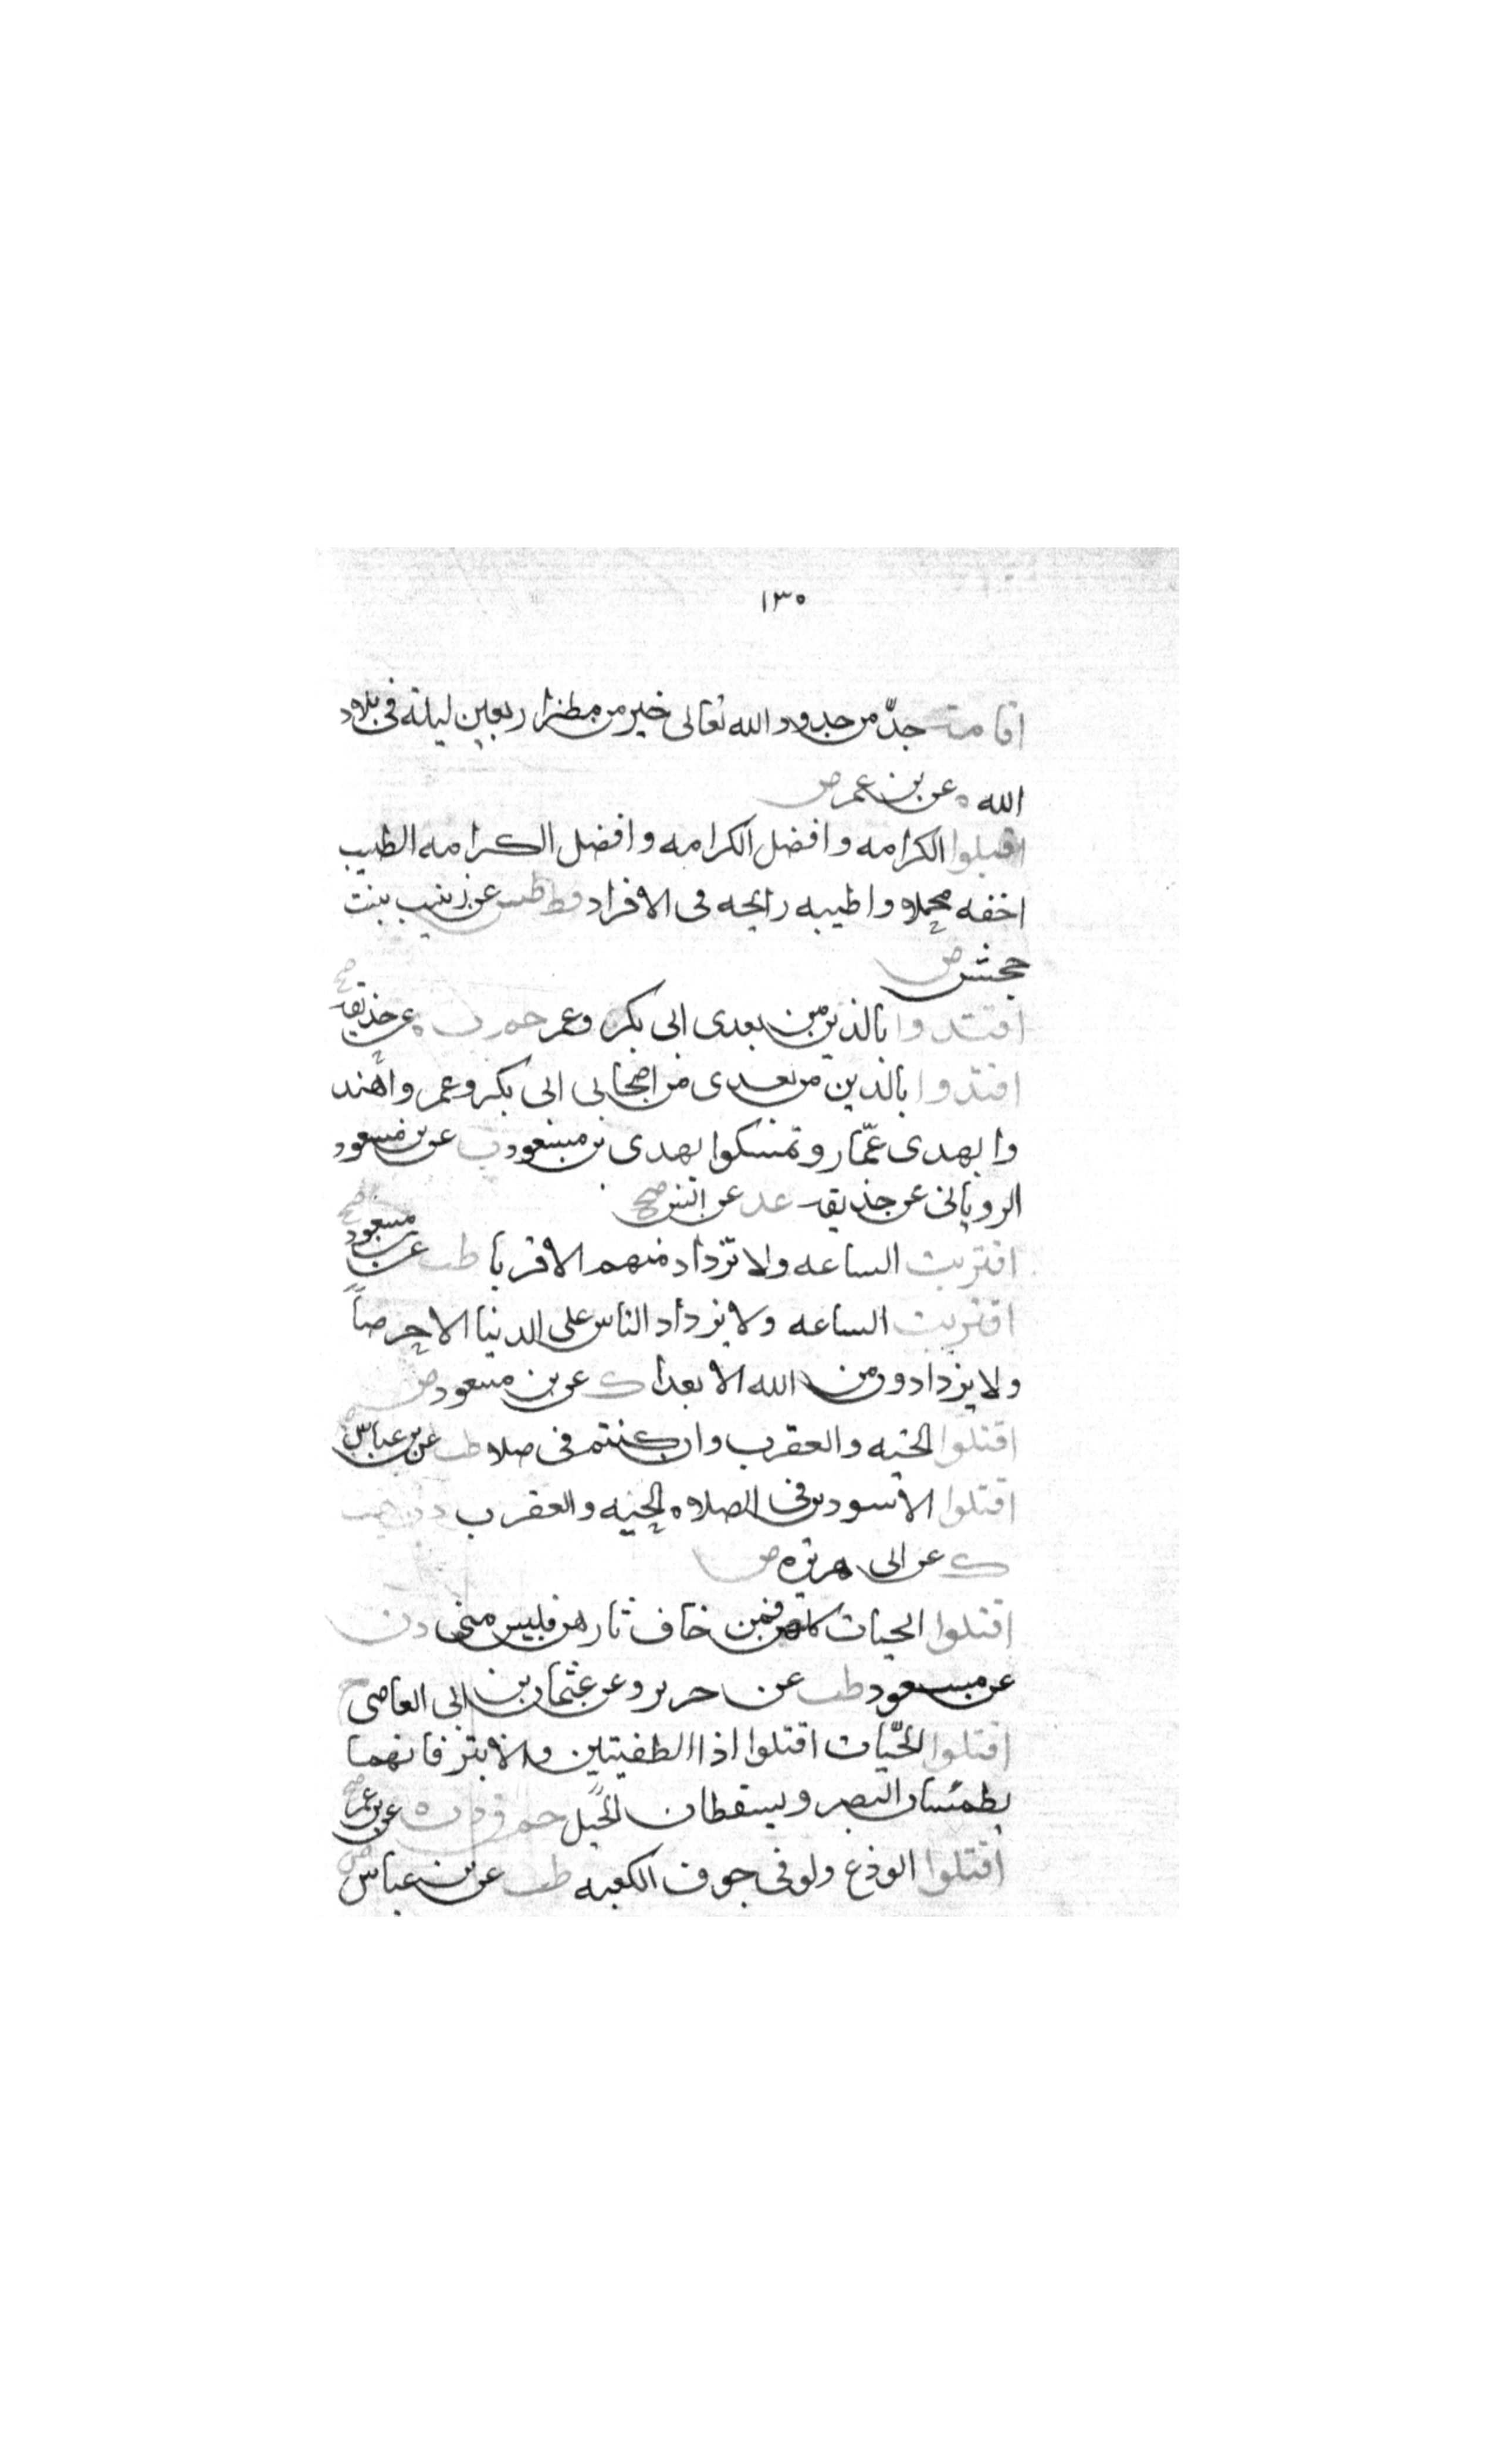 ١٣٠
اقامة حدّ من حدود الله تعالى خير من مطر اربعين ليلة فى بلاد
الله ه عن بن عمر ض
اقبلوا الكرامه وافضل الكرامه وافضل الكرامه الطيب
اخفه محملا واطيبه رايحه فى الافراد قط طس عن زينب بنت
جحش ض
اقتدوا بالذين من بعدى ابى بكر وعمر حم ت ه عن حذيفه صح
اقتدوا بالذين من بعدى من اصحابى ابى بكر وعمر واهتد
وا بهدى عمّار وتمسكوا بهدى بن مسعود ت عن بن مسعود
الرويانى عن حذيفه عد عن انس صح
اقتربت الساعه ولا تزداد منهم الا قربا طب عن بن مسعود صح
اقتربت الساعه ولا يزداد الناس على الدنيا الا حرصاً
ولا يزدادون من الله الا بعدا ك عن بن مسعود ض
اقتلوا الحيه والعقرب وان كنتم فى صلاه طب عن بن عباس
اقتلوا الاسودين فى الصلاه الحيه والعقرب د ت حب
ك عن ابى هريره ض
اقتلوا الحيات كلهن فمن خاف ثارهن فليس منى د ن
عن مسعود طب عن جرير وعن عثمان بن ابى العاصى صح
اقتلوا الحيّات اقتلوا اذا الطفيتين والابتر فانهما
يطمسان البصر ويسقطان الحبل حم ق د ت ه عن بن عمر صح
اقتلوا الوزغ ولو فى جوف الكعبه طب عن بن عباس ض